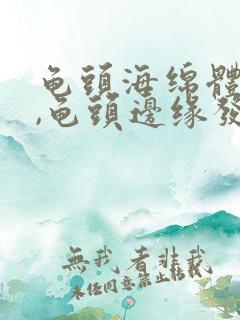 龟頭海绵體
,龟頭邊缘發
無我者非我
未任同意禁止転載